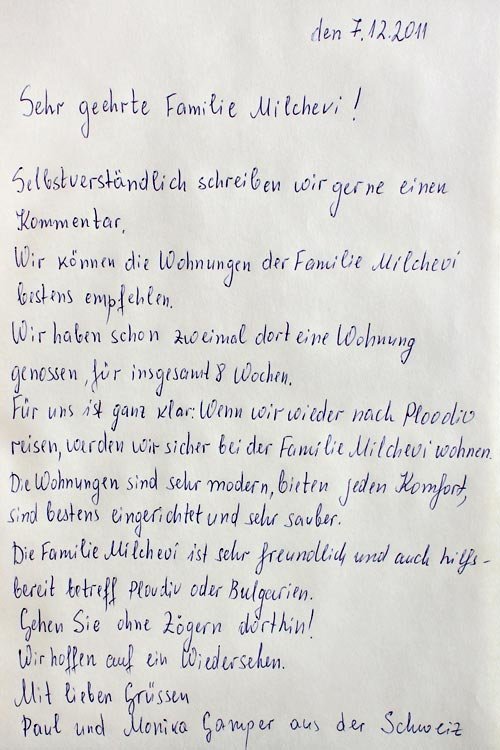 den 7.12.2011
Sehr geehrte Familie Milchevi!
Selbstverständlich schreiben wir gerne einen
Kommentar,
Wir können die Wohnungen der Familie Milchevi
bestens empfehlen.
Wir haben schon zweimal dort eine Wohnung
genossen, für insgesamt 8 Wochen.
Für uns ist ganz klar: Wenn wir wieder nach Plovdiv
reisen, werden wir sicher bei der Familie Milchevi wohnen.
Die Wohnungen sind sehr modern, bieten jeden Komfort,
sind bestens eingerichtet und sehr sauber.
Die Familie Milchevi ist sehr freundlich und auch hilfs-
bereit betreff Plovdiv oder Bulgarien.
Gehen Sie ohne Zögern dorthin!
Wir hoffen auf ein Wiedersehen.
Mit lieben Grüssen
Paul und Monika Gamper aus der Schweiz